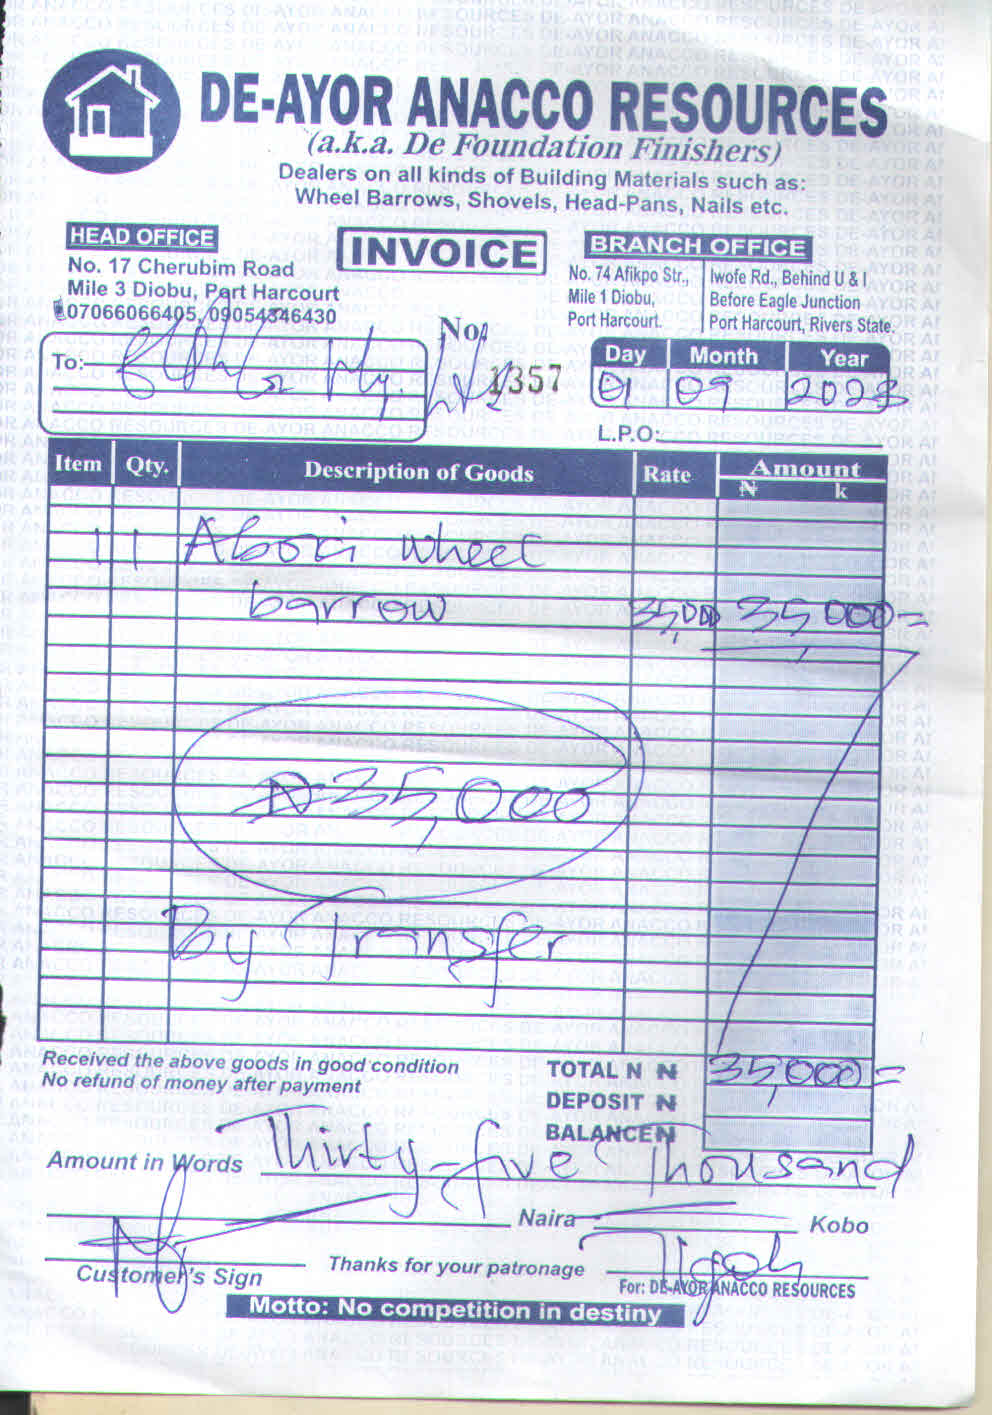 DE-AYOR ANACCO RESOURCES
(a.k.a. De Foundation Finishers)
Dealers on all kinds of Building Materials such as:
Wheel Barrows, Shovels, Head-Pans, Nails etc.
HEAD OFFICE
No. 17 Cherubim Road
Mile 3 Diobu, Port Harcourt
07066066405, 09054346430
INVOICE
BRANCH OFFICE
No. 74 Afikpo Str.,
Mile 1 Diobu,
Port Harcourt.
Iwofe Rd., Behind U & I
Before Eagle Junction
Port Harcourt, Rivers State.
To:
No. 1357
Day Month Year
01 09 2023
L.P.O:
Item Qty. Description of Goods Rate Amount
₦ k
1 1 wheel
barrow 35,000 35,000=
₦35,000
By Transfer
Received the above goods in good condition
No refund of money after payment
TOTAL N ₦ 35,000=
DEPOSIT ₦
BALANCE ₦
Amount in Words Thirty-five Thousand
Naira Kobo
Customer's Sign
Thanks for your patronage
For: DE-AYOR ANACCO RESOURCES
Motto: No competition in destiny